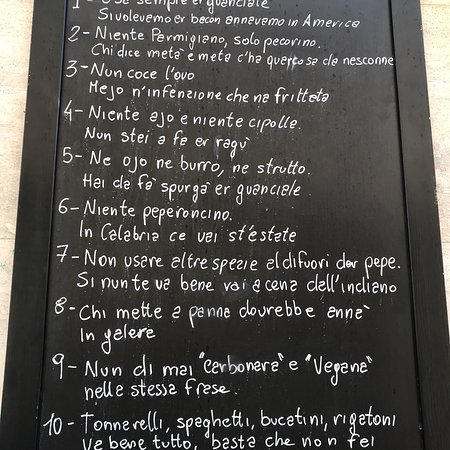 1 - Usa sempre er guanciale
Si volevemo er bacon annavamo in America
2 - Niente Parmigiano, solo pecorino.
Chi dice metà e metà c'ha quarcosa da nesconne
3 - Nun coce l'ovo
Mejo n'infenzione che na frittata
4 - Niente ajo e niente cipolla.
Nun stai a fa er ragù
5 - Ne ojo ne burro, ne strutto.
Hai da fà spurgà er guanciale
6 - Niente peperoncino.
In Calabria ce vai st'estate
7 - Non usare altre spezie al difuori der pepe.
Si punte va bene vai a cena dell'indiano
8 - Chi mette a panna dovrebbe annà
In galera
9 - Nun di mai "carbonara" e "Vegana"
nella stessa frase.
10 - Tonnarelli, spaghetti, bucatini, rigatoni
Va bene tutto, basta che non fai